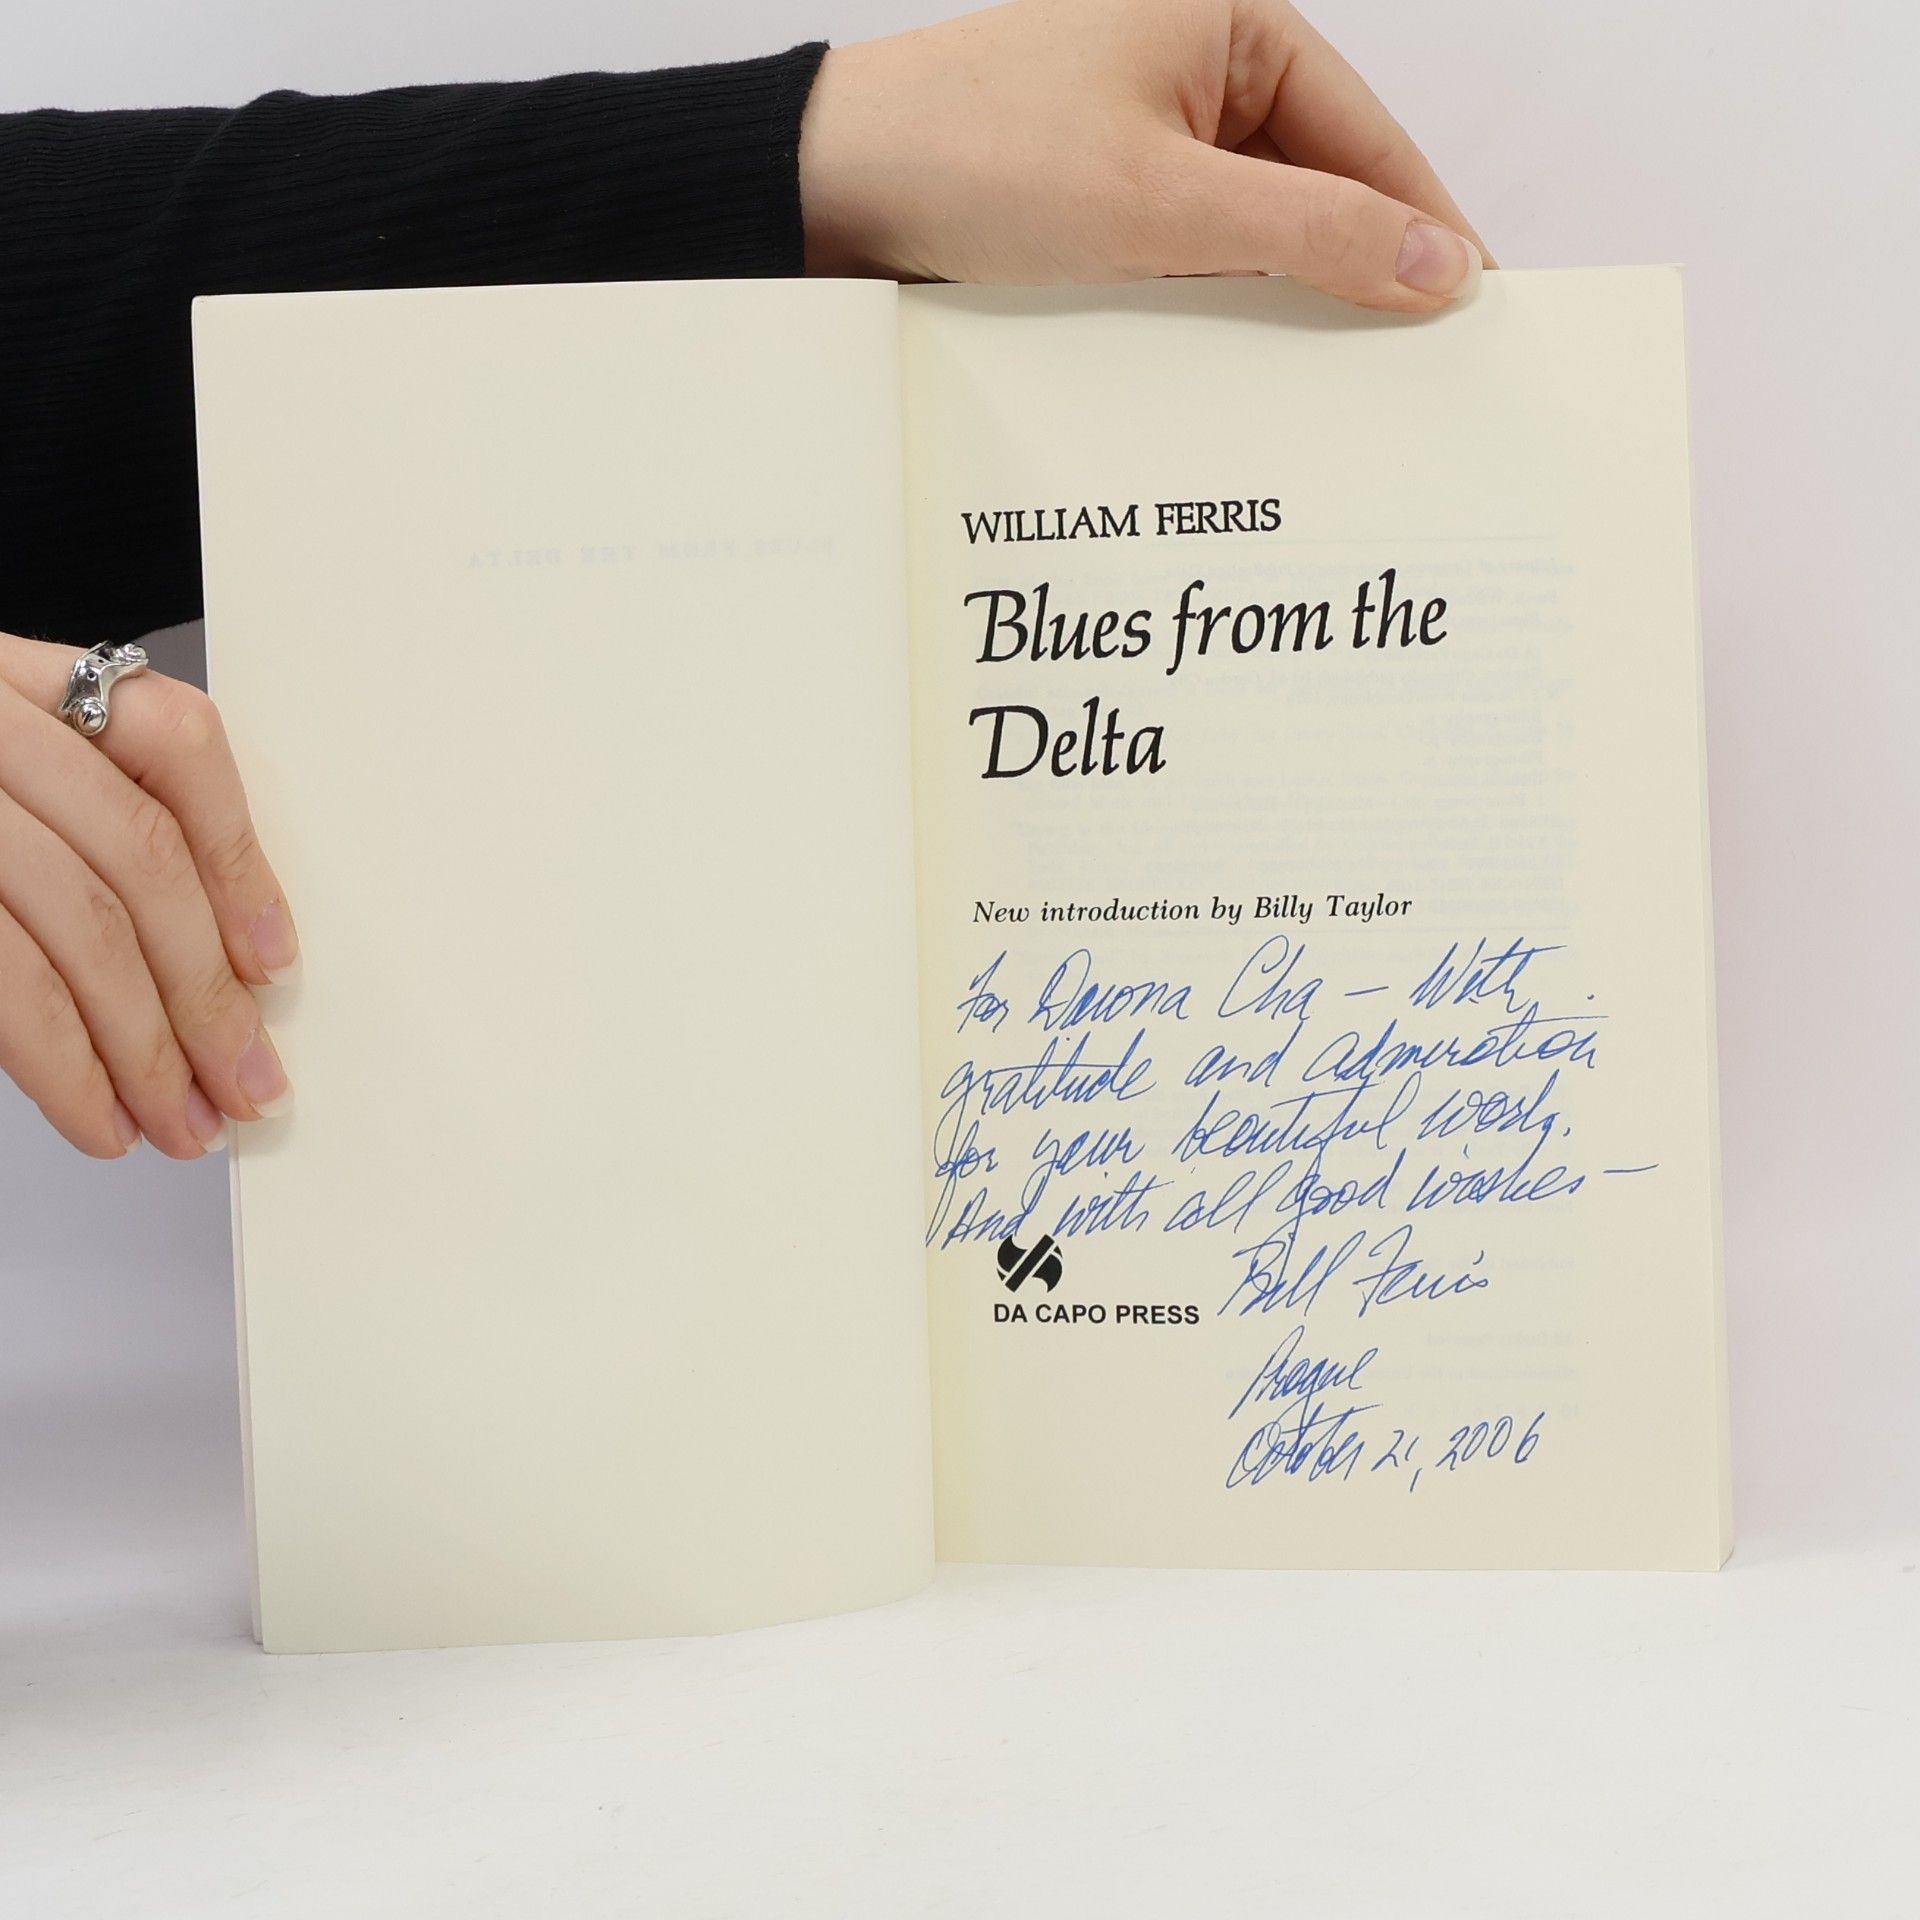 BLUES FROM THE DELTA
WILLIAM FERRIS
Blues from the
Delta
New introduction by Billy Taylor
For Dawna Cha — With
gratitude and admiration
for your beautiful work.
And with all good wishes —
Bill Ferris
DA CAPO PRESS
Prague
October 21, 2006